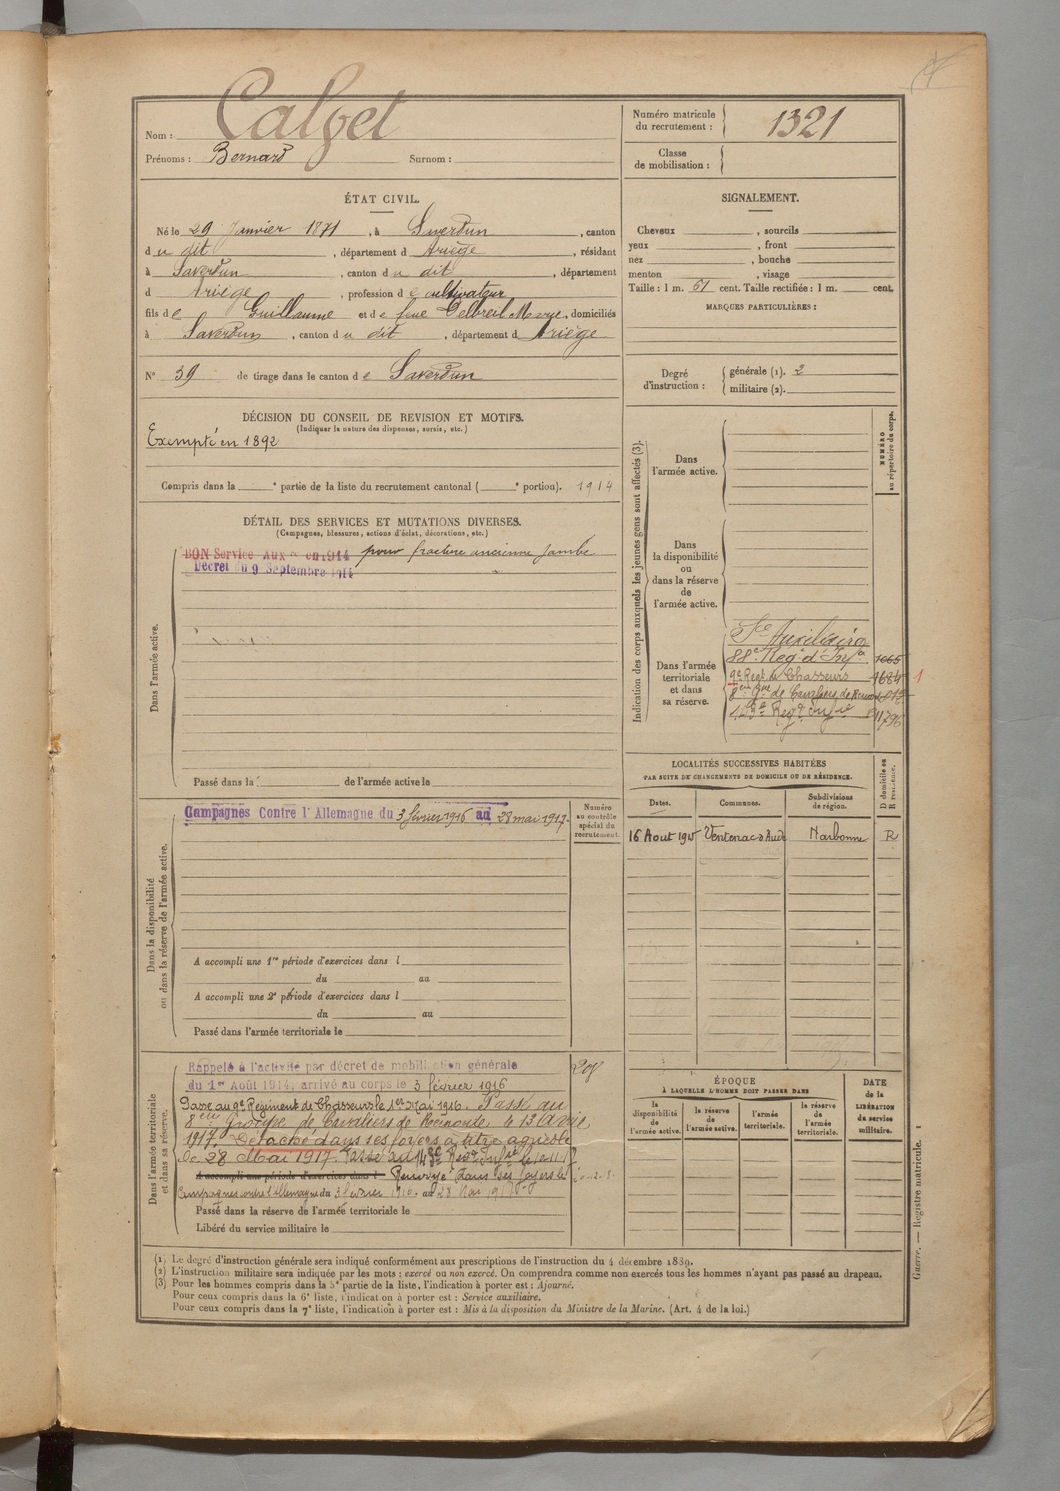 Nom : Calvet
Prénoms : Bernard Surnom :
Numéro matricule du recrutement : 1321
Classe de mobilisation :
ÉTAT CIVIL.
Né le 29 Janvier 1871, à Saverdun, canton
d u dit, département d Ariège, résidant
à Saverdun, canton d u dit, département
d Ariège, profession d e cultivateur
fils d e Guillaume et d e feue Delbreil Marie, domiciliés
à Saverdun, canton d u dit, département d Ariège
N° 39 de tirage dans le canton d e Saverdun
SIGNALEMENT.
Cheveux , sourcils
yeux , front
nez , bouche
menton , visage
Taille : 1 m. 61 cent. Taille rectifiée : 1 m. cent.
MARQUES PARTICULIÈRES :
Degré d'instruction : générale (1). 2
militaire (2).
DÉCISION DU CONSEIL DE REVISION ET MOTIFS.
(Indiquer la nature des dispenses, sursis, etc.)
Exempté en 1892
Compris dans la e partie de la liste du recrutement cantonal ( e portion). 1914
DÉTAIL DES SERVICES ET MUTATIONS DIVERSES.
(Campagnes, blessures, actions d'éclat, décorations, etc.)
Dans l'armée active.
BON Service Aux re en 1914 pour fracture ancienne jambe
Décret du 9 Septembre 1914
Passé dans la de l'armée active le
Indication des corps auxquels les jeunes gens sont affectés (3).
NUMÉRO au répertoire du corps.
Dans l'armée active.
Dans la disponibilité ou dans la réserve de l'armée active.
Dans l'armée territoriale et dans sa réserve.
Sce Auxiliaire
88e Reg. d'Infie 1065
9e Regt de Chasseurs 1684 1
8eme Gpe de Cavaliers de Remonte
143e Regt Infie
LOCALITÉS SUCCESSIVES HABITÉES
PAR SUITE DE CHANGEMENTS DE DOMICILE OU DE RÉSIDENCE.
D domicile ou R résidence.
Dates. Communes. Subdivisions de région.
16 Aout 1915 Ventenac d'Aude Narbonne R
Dans la disponibilité ou dans la réserve de l'armée active.
Numéro au contrôle spécial du recrutement.
Campagnes Contre l'Allemagne du 3 février 1916 au 28 mai 1917.
A accompli une 1re période d'exercices dans l
du au
A accompli une 2e période d'exercices dans l
du au
Passé dans l'armée territoriale le
Dans l'armée territoriale et dans sa réserve.
Rappelé à l'activité par décret de mobilisation générale
du 1er Août 1914, arrivé au corps le 3 février 1916
Passé au 9e Régiment de Chasseurs le 1er Mai 1916. Passé au
8eme Groupe de Cavaliers de Remonte, le 13 Avril
1917. Détaché dans ses foyers à titre agricole
le 28 Mai 1917. Passé au 143e Regt Infie le
A accompli une période d'exercices dans l Renvoyé dans ses foyers le
Campagnes contre l'Allemagne du 3 février 1916 au 28 Mai 1917
Passé dans la réserve de l'armée territoriale le
Libéré du service militaire le
ÉPOQUE
À LAQUELLE L'HOMME DOIT PASSER DANS
la disponibilité de l'armée active.
la réserve de l'armée active.
l'armée territoriale.
la réserve de l'armée territoriale.
DATE de la LIBÉRATION du service militaire.
(1) Le degré d'instruction générale sera indiqué conformément aux prescriptions de l'instruction du 4 décembre 1889.
(2) L'instruction militaire sera indiquée par les mots : exercé ou non exercé. On comprendra comme non exercés tous les hommes n'ayant pas passé au drapeau.
(3) Pour les hommes compris dans la 5e partie de la liste, l'indication à porter est : Ajourné.
Pour ceux compris dans la 6e liste, l'indication à porter est : Service auxiliaire.
Pour ceux compris dans la 7e liste, l'indication à porter est : Mis à la disposition du Ministre de la Marine. (Art. 4 de la loi.)
Guerre. — Registre matricule. 1